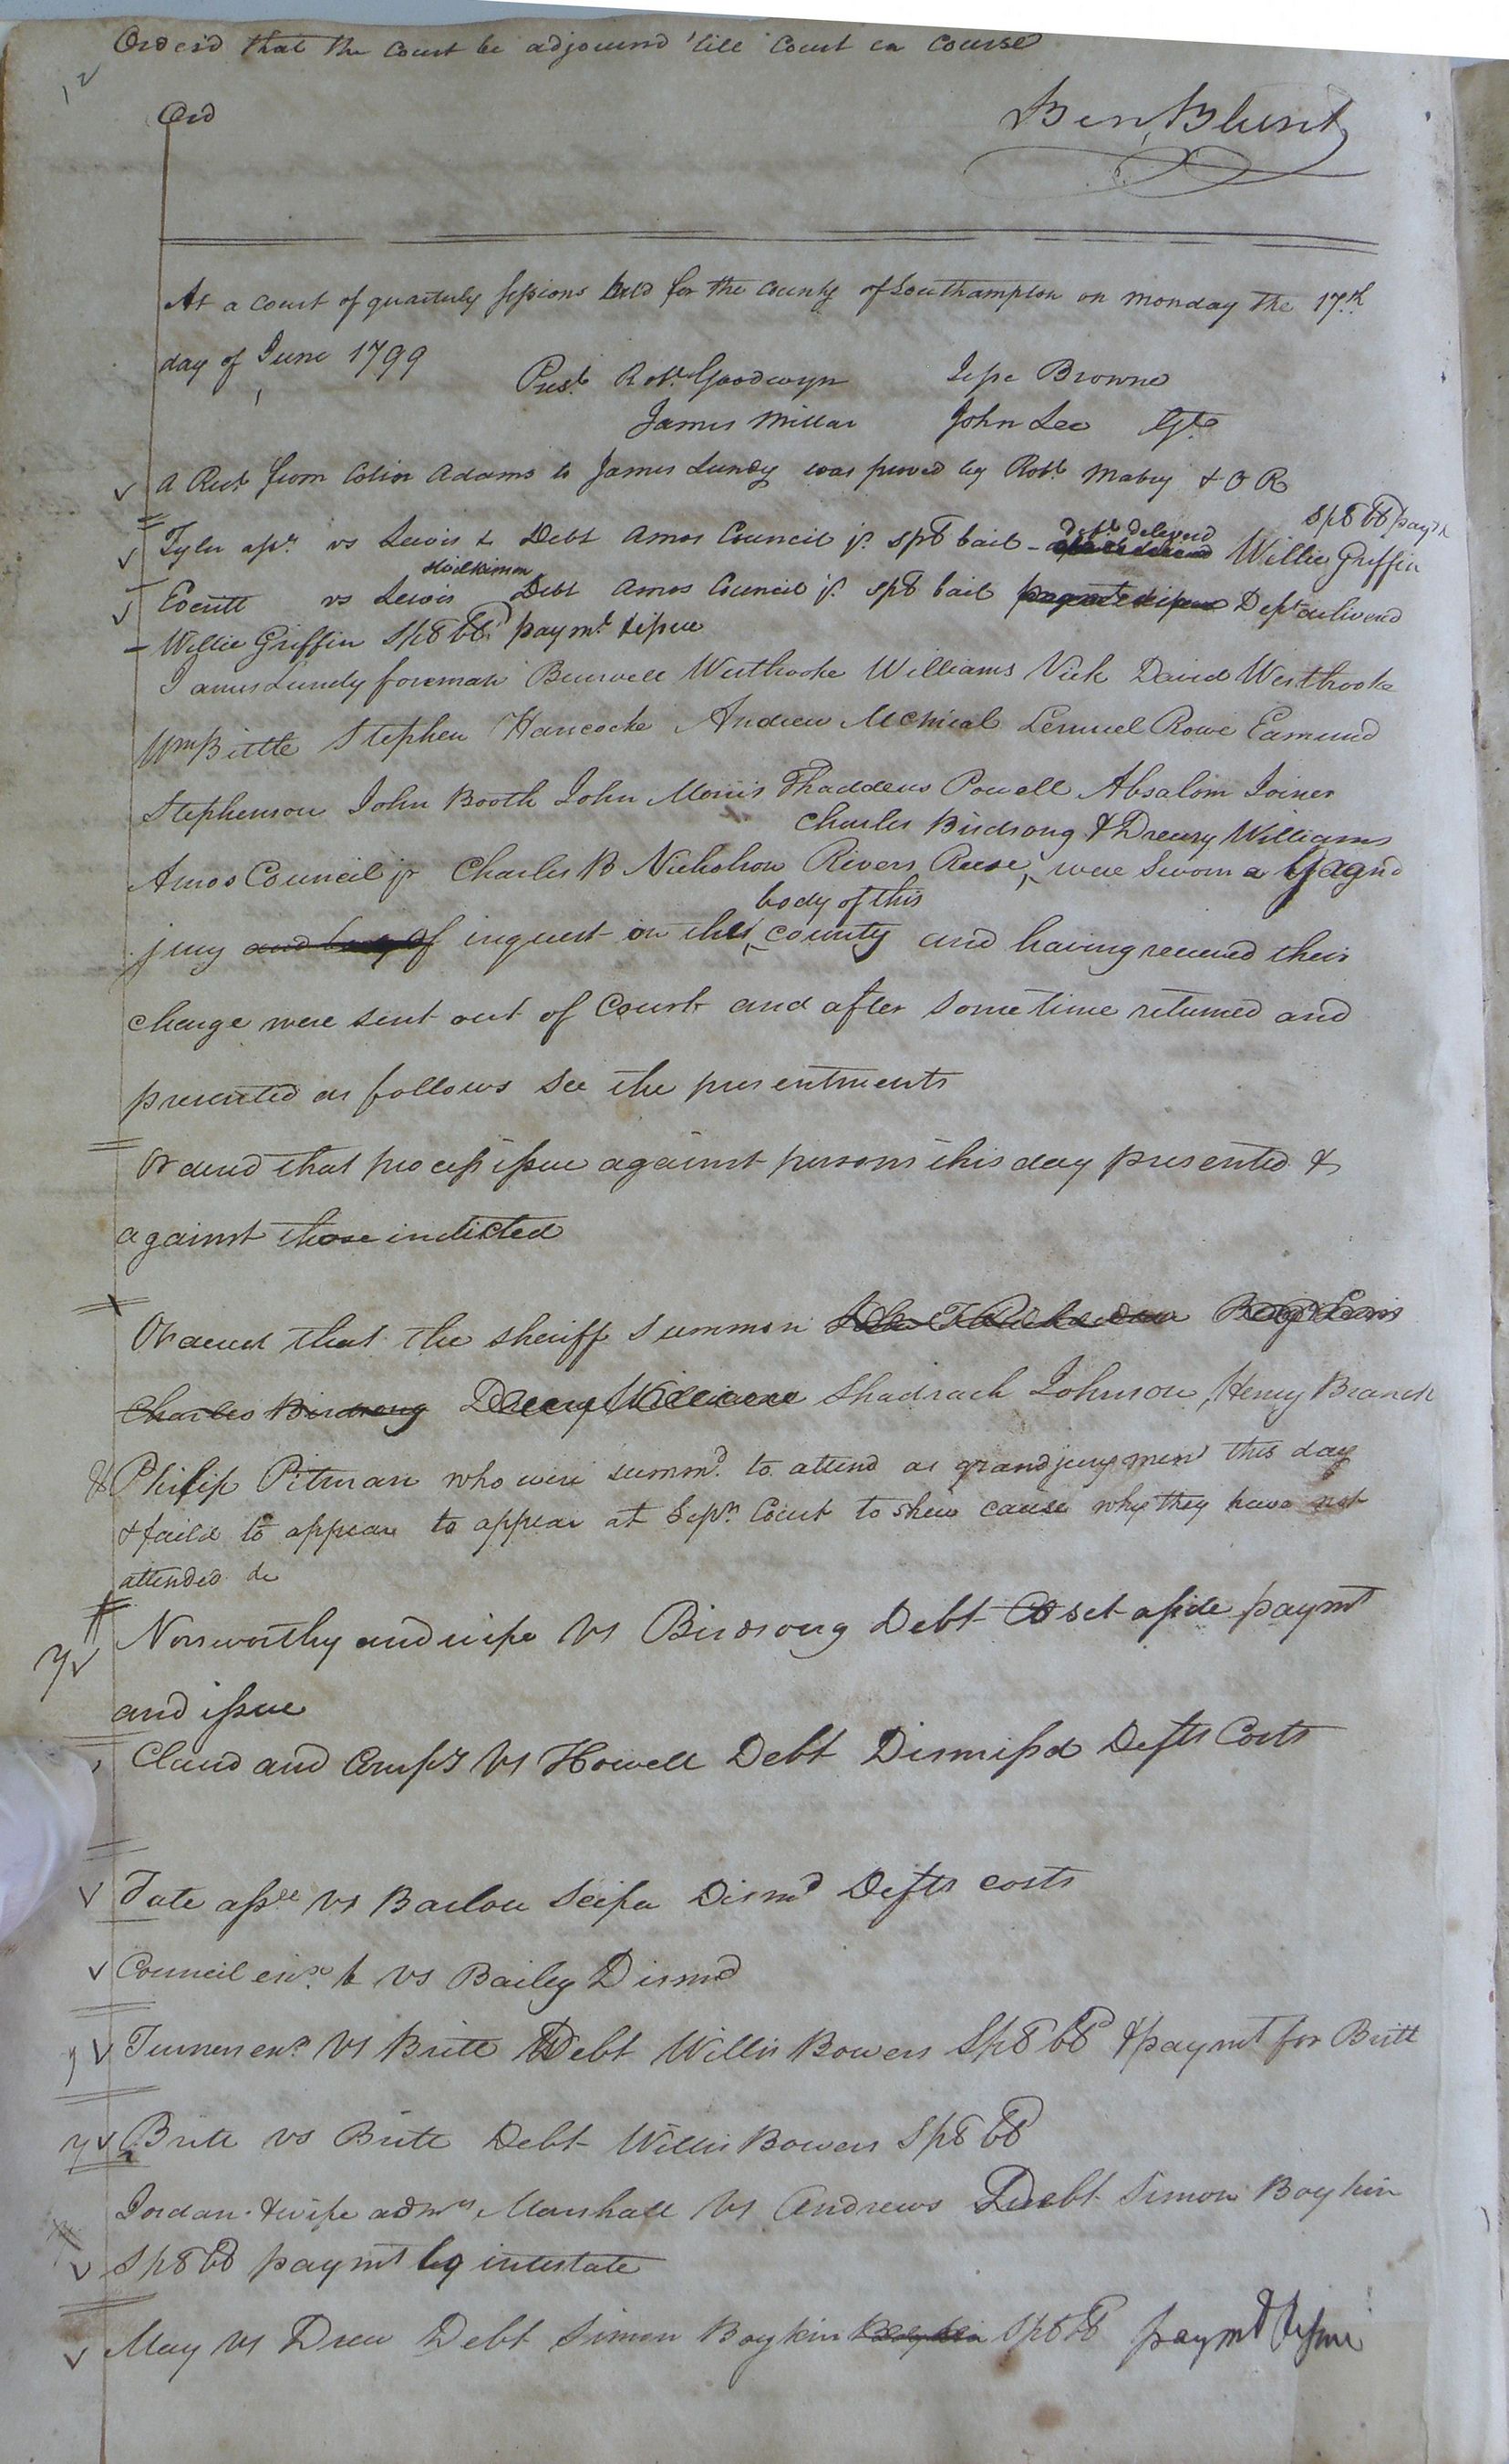 Orderd that the Court be adjournd 'till Court in Course
12
Ord
Ben, Blunt
At a Court of quarterly Sessions held for the County of Southampton on monday the 17th
day of June 1799
Prest. Robt. Goodwyn Jesse Browne
James Millar John Lee Gte
A Rect from Colin Adams to James Lundy was proved by Robt. Mabry & O R
Spl bb paymt
Deft. deliverd
Tyler asse. vs Lewis & Debt Amos Council jr. spl bail - Willie Griffin
Wilkinson
Everitt vs Lewis Debt Amos Council jr. spl bail Deft deliverd
Willie Griffin Spl bb. paymt & issue
James Lundy foreman Burwell Westbrooke Williams Vick David Westbrooke
Wm Bittle Stephen Hancocke Andrew McNial Lemuel Rowe Edmund
Stephenson John Booth John Morris Thaddeus Powell Absalom Joiner
Charles Birdsong & Drewry Williams
Amos Council jr Charles B Nicholson Rivers Reese, were Sworn a Grand
body of this
jury of inquest on the county and having received their
charge were sent out of Court and after some time returned and
presented as follows see the presentments
Orderd that process issue against persons this day presented &
against those indicted
Orderd that the sheriff Summon
Charles Birdsong Drewry Williams Shadrach Johnson, Henry Branch
& Philip Pitman who were summd. to attend as grandjury men this day
& faild to appear to appear at Sepr. Court to shew cause why they have not
attended &c
Norsworthy and wife vs Birdsong Debt CO set aside paymt
and issue
Claud and Compy vs Howell Debt Dismissd Defts Costs
Tate assee vs Barlow Scifa Dismd Defts costs
Council exrs. &c vs Bailey Dismd
Turners exr. vs Britt Debt Willis Bowers Spl bb & paymt for Britt
Britt vs Britt Debt Willis Bowers Spl bb
Jordan & wife admrs Marshall vs Andrews Debt Simon Boykin
Spl bb paymt by intestate
May vs Drew Debt Simon Boykin Boykin Spl bb paymt & issue